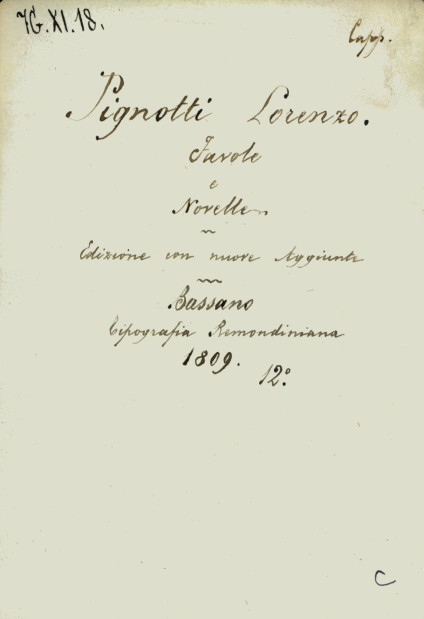 7G.XI.18.
Capp.
Pignotti Lorenzo.
Favole
e
Novelle
Edizione con nuove Aggiunte
Bassano
Tipografia Remondiniana
1809.
12°.
C